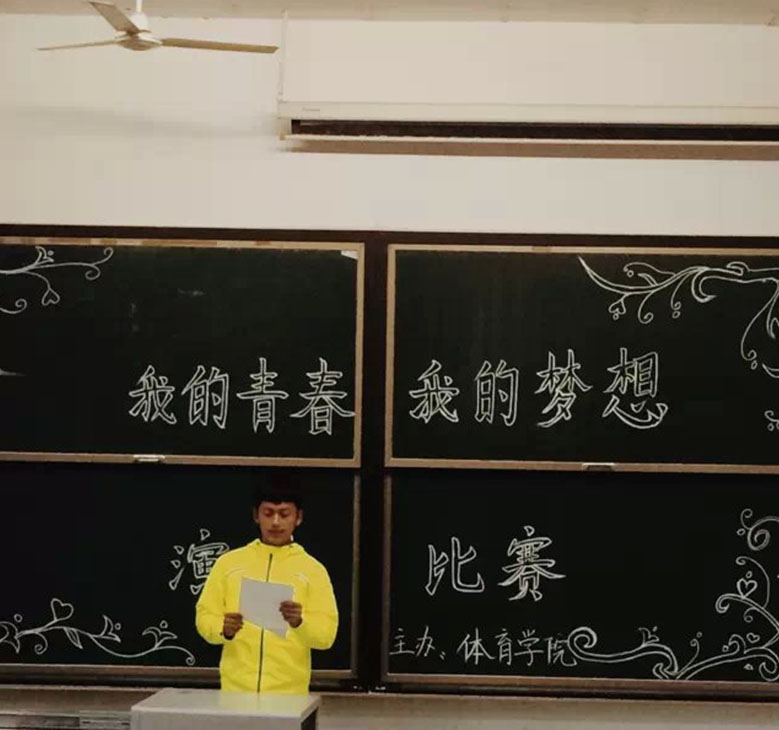 我的青春 我的梦想
演 比赛
主办：体育学院